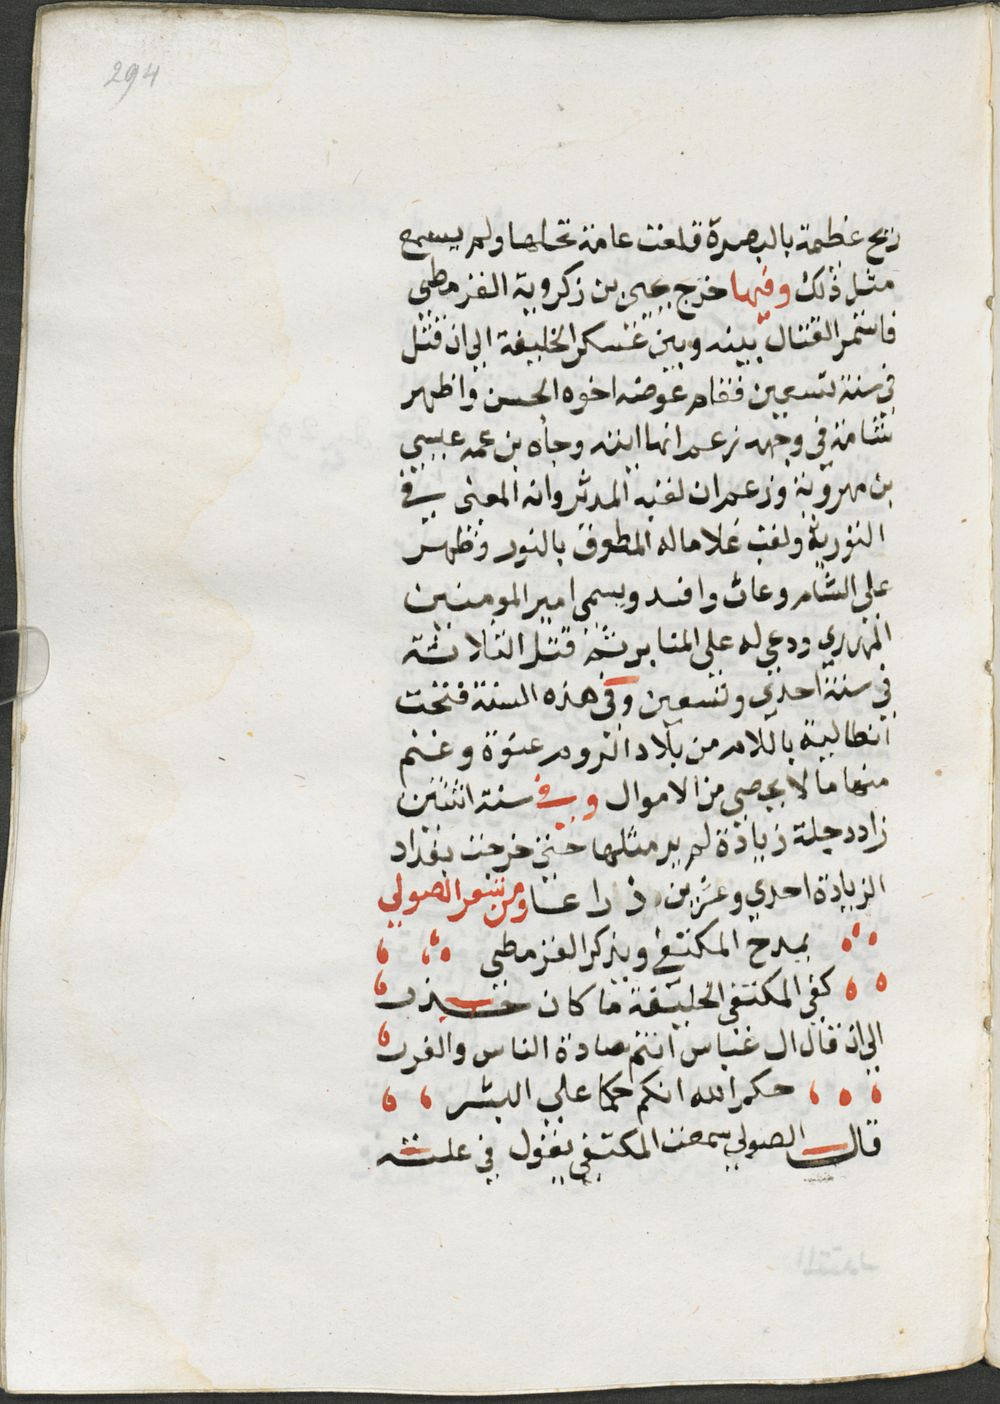 294
ريح عظيمة بالبصرة قلعت عامة نخلها ولم يسمع
مثل ذلك وفيها خرج يحيى بن زكروية القرمطي
فاستمر القتال بينه وبين عسكر الخليفة الي ان قتل
في سنة تسعين فقام عوضه اخوه الحسن واظهر
شامة في وجهه زعم انها ايته وجاه بن عمه عيسي
بن مهروية وزعم ان لقبه المدثر وانه المعنى في
السورة ولقب غلاما له المطوق بالنور وظهر
علي الشام وعاث وافسد ويسمى امير المومنين
المهدي ودعي له على المنابر ثم قتل الثلاثة
في سنة احدي وتسعين وفى هذه السنة فتحت
انطالية باللام من بلاد الروم عنوة وغنم
منها ما لا يحصى من الاموال وفي سنة اثنتين
زاد دجلة زيادة لم ير مثلها حتى خربت بغداد
الزيادة احدي وعشرين ذراعا ومن شعر الصولي
يمدح المكتفي ويذكر القرمطي
كفى المكتفى الخليفة ما كان حذر
الي ان قال ال عباس انتم سادة الناس والغرر
حكم الله انكم حكما علي البشر
قال الصولي سمعت المكتفي يقول في علته